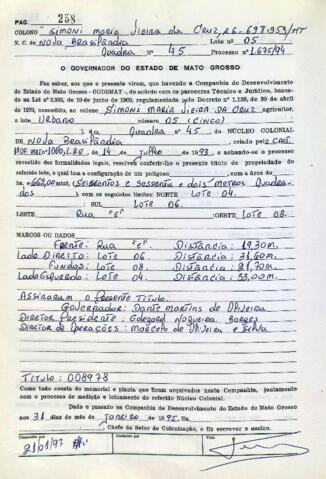 PAG. 258
COLONO Simoni Maria Vieira da Cruz, RG. 698.959/MT
N. C. de Nova Brasilândia Lote nº 05
Quadra nº 45 Processo nº 1.675/94
O GOVERNADOR DO ESTADO DE MATO GROSSO
Faz saber, aos que o presente virem, que havendo a Companhia de Desenvolvimento
do Estado de Mato Grosso - CODEMAT -, de acordo com os pareceres Técnico e Jurídico, basea-
da na Lei nº 2.938, de 10 de junho de 1969, regulamentada pelo Decreto nº 1.138, de 30 de abril
de 1970, concedido, ao colono Simoni Maria Vieira da Cruz agricultor,
o lote Urbano nº 05 (cinco)
) da Quadra nº 45 do NÚCLEO COLONIAL
de Nova Brasilândia criado pelo
de 14 de Julho de 1993, e achando-se o processo
revestido das formalidades legais, resolveu conferir-lhe o presente título de propriedade
do referido lote, o qual tem a configuração de um polígono com a área
de 662,00 mts2, (Seiscentos e sessenta e dois metros quadra-
dos) com os seguintes limites: NORTE Lote 04.
SUL Lote 06.
LESTE Rua "E" OESTE Lote 08.
MARCOS OU DADOS
Frente: Rua "E" Distância: 19,30m.
Lado Direito: Lote 06 Distância: 31,60m
Fundos: Lote 08. Distância: 21,70m
Lado Esquerdo: Lote 04. Distância: 33,00m.
Assinaram o Presente Título:
Governador: Dante Martins de Oliveira
Director Presidente: Nogueira Borges
Director de Operações: Marcelo de Oliveira e Silva
Título: 008978
Como tudo consta do memorial e planta que ficam arquivados nesta Companhia, juntamente
com o processo de medição e loteamento do referido Núcleo Colonial.
Dado e passado na Companhia de Desenvolvimento do Estado de Mato Grosso
aos 31 dias do mês de Janeiro de 1995. Eu,
Chefe do Setor de Colonização, o fiz escrever e assino.
21/01/97